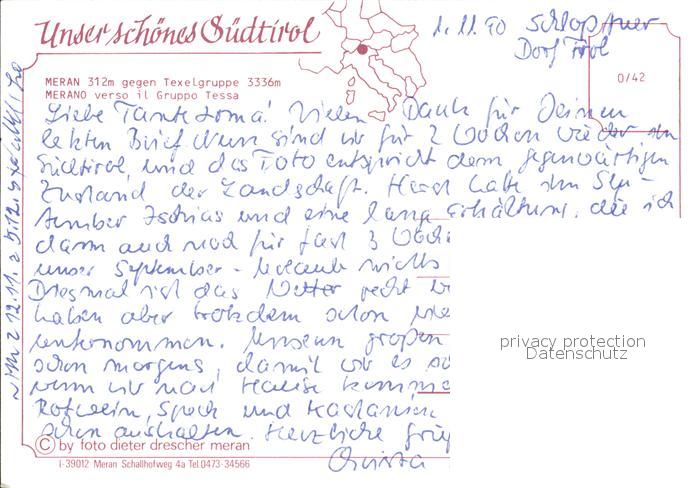 Unser schönes Südtirol
1.11.90
Dorf Tirol
MERAN 312m gegen Texelgruppe 3336m
MERANO verso il Gruppo Tessa
0/42
Liebe Tante Irma! Vielen Dank für Deinen
letzten Brief. Nun sind wir für 2 Wochen wieder in
Südtirol, und das Foto entspricht dem gegenwärtigen
Zustand der Landschaft. Horst hatte im Sep-
tember Ischias und eine lang Erkältung, die ich
dann auch noch für fast 3 Woch
unser September-Urlaub nichts
Diesmal ist das Wetter recht
haben aber trotzdem schon
unternommen. Unseren großen
schon morgens, damit wir es
wenn wir nach Hause komme
Rotwein, Speck und Kastanien
schon aushalten. Herzliche Grüß
Christa
privacy protection
Datenschutz
© by foto dieter drescher meran
I-39012 Meran Schallhofweg 4a Tel.0473-34566